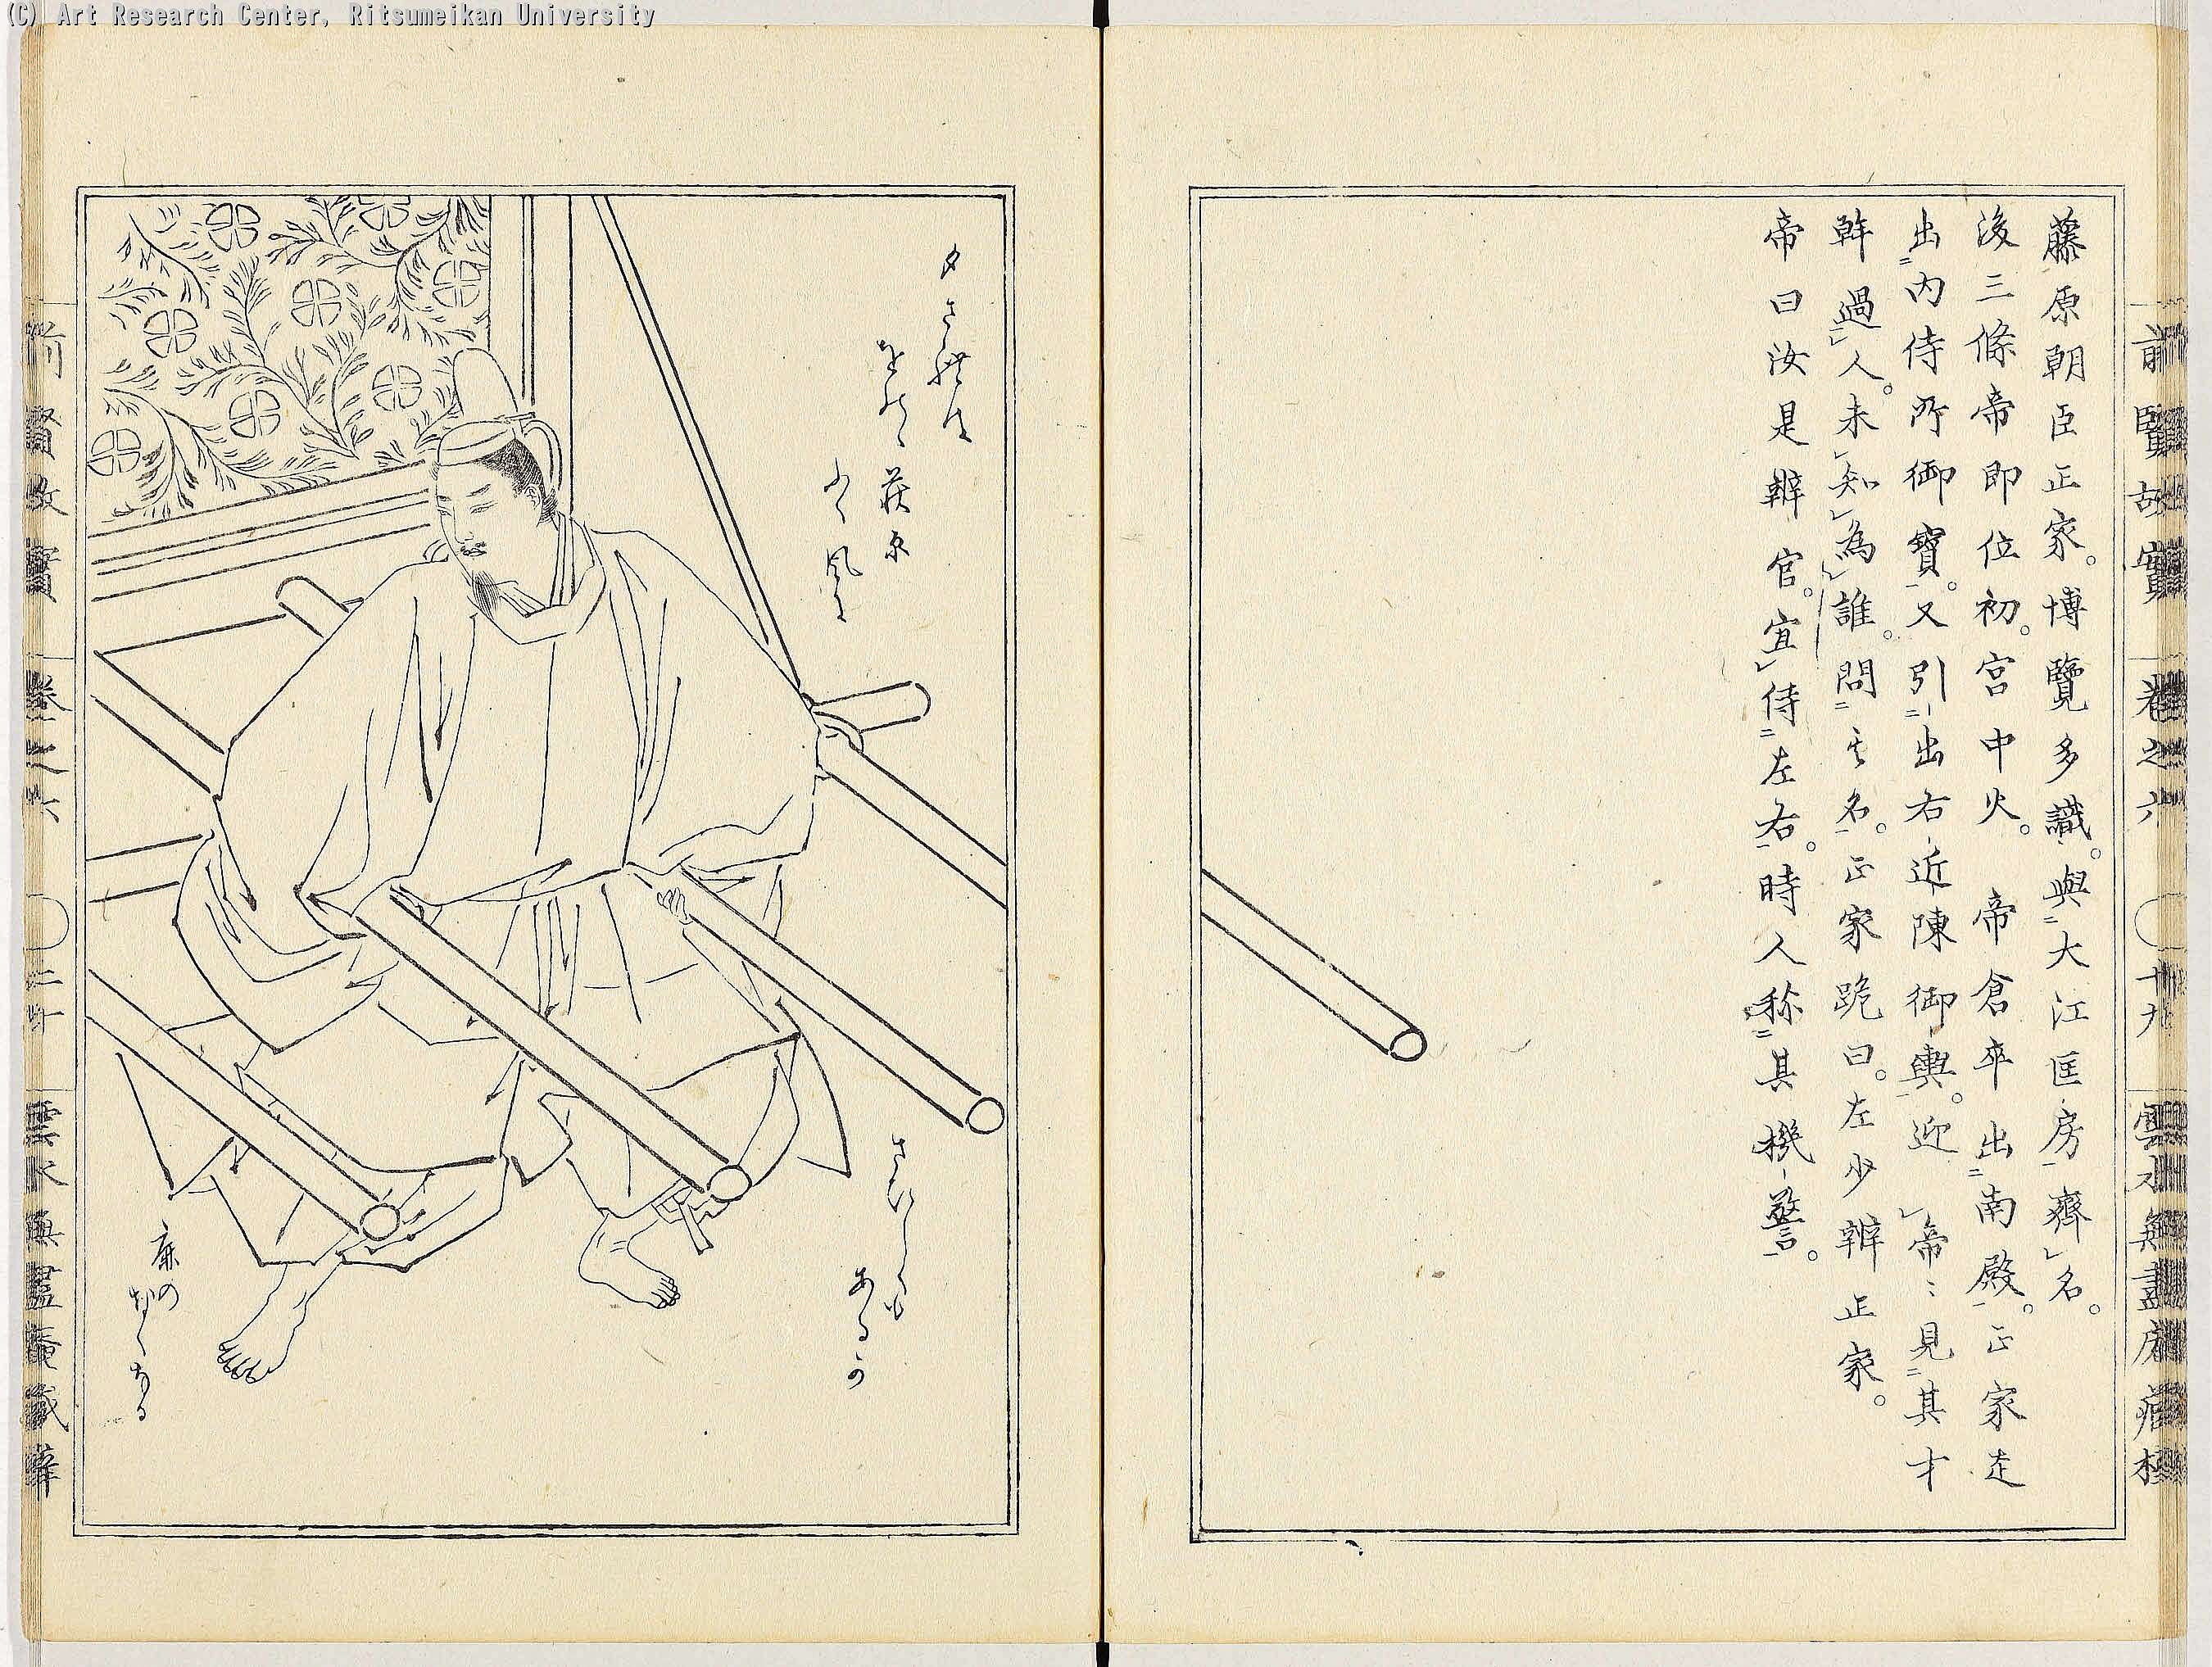 (C) Art Research Center, Ritsumeikan University
前賢故實 卷之六 十九 雲水無盡庵藏梓
藤原朝臣正家。博覽多識。與大江匡房齊名。
後三條帝即位初。宮中火。 帝倉卒出南殿。正家走
出内侍所御寶。又引出右近陳御輿。迎 帝〻見其才
幹過人。未知為誰。問其名。正家跪曰。左少辨正家。
帝曰汝是辨官。宜侍左右。時人称其機警。
夕されは
をのゝ萩原
ふく風に
さひしくも
あるか
鹿の
なくなる
前賢故實 卷之六 二十 雲水無盡庵藏梓